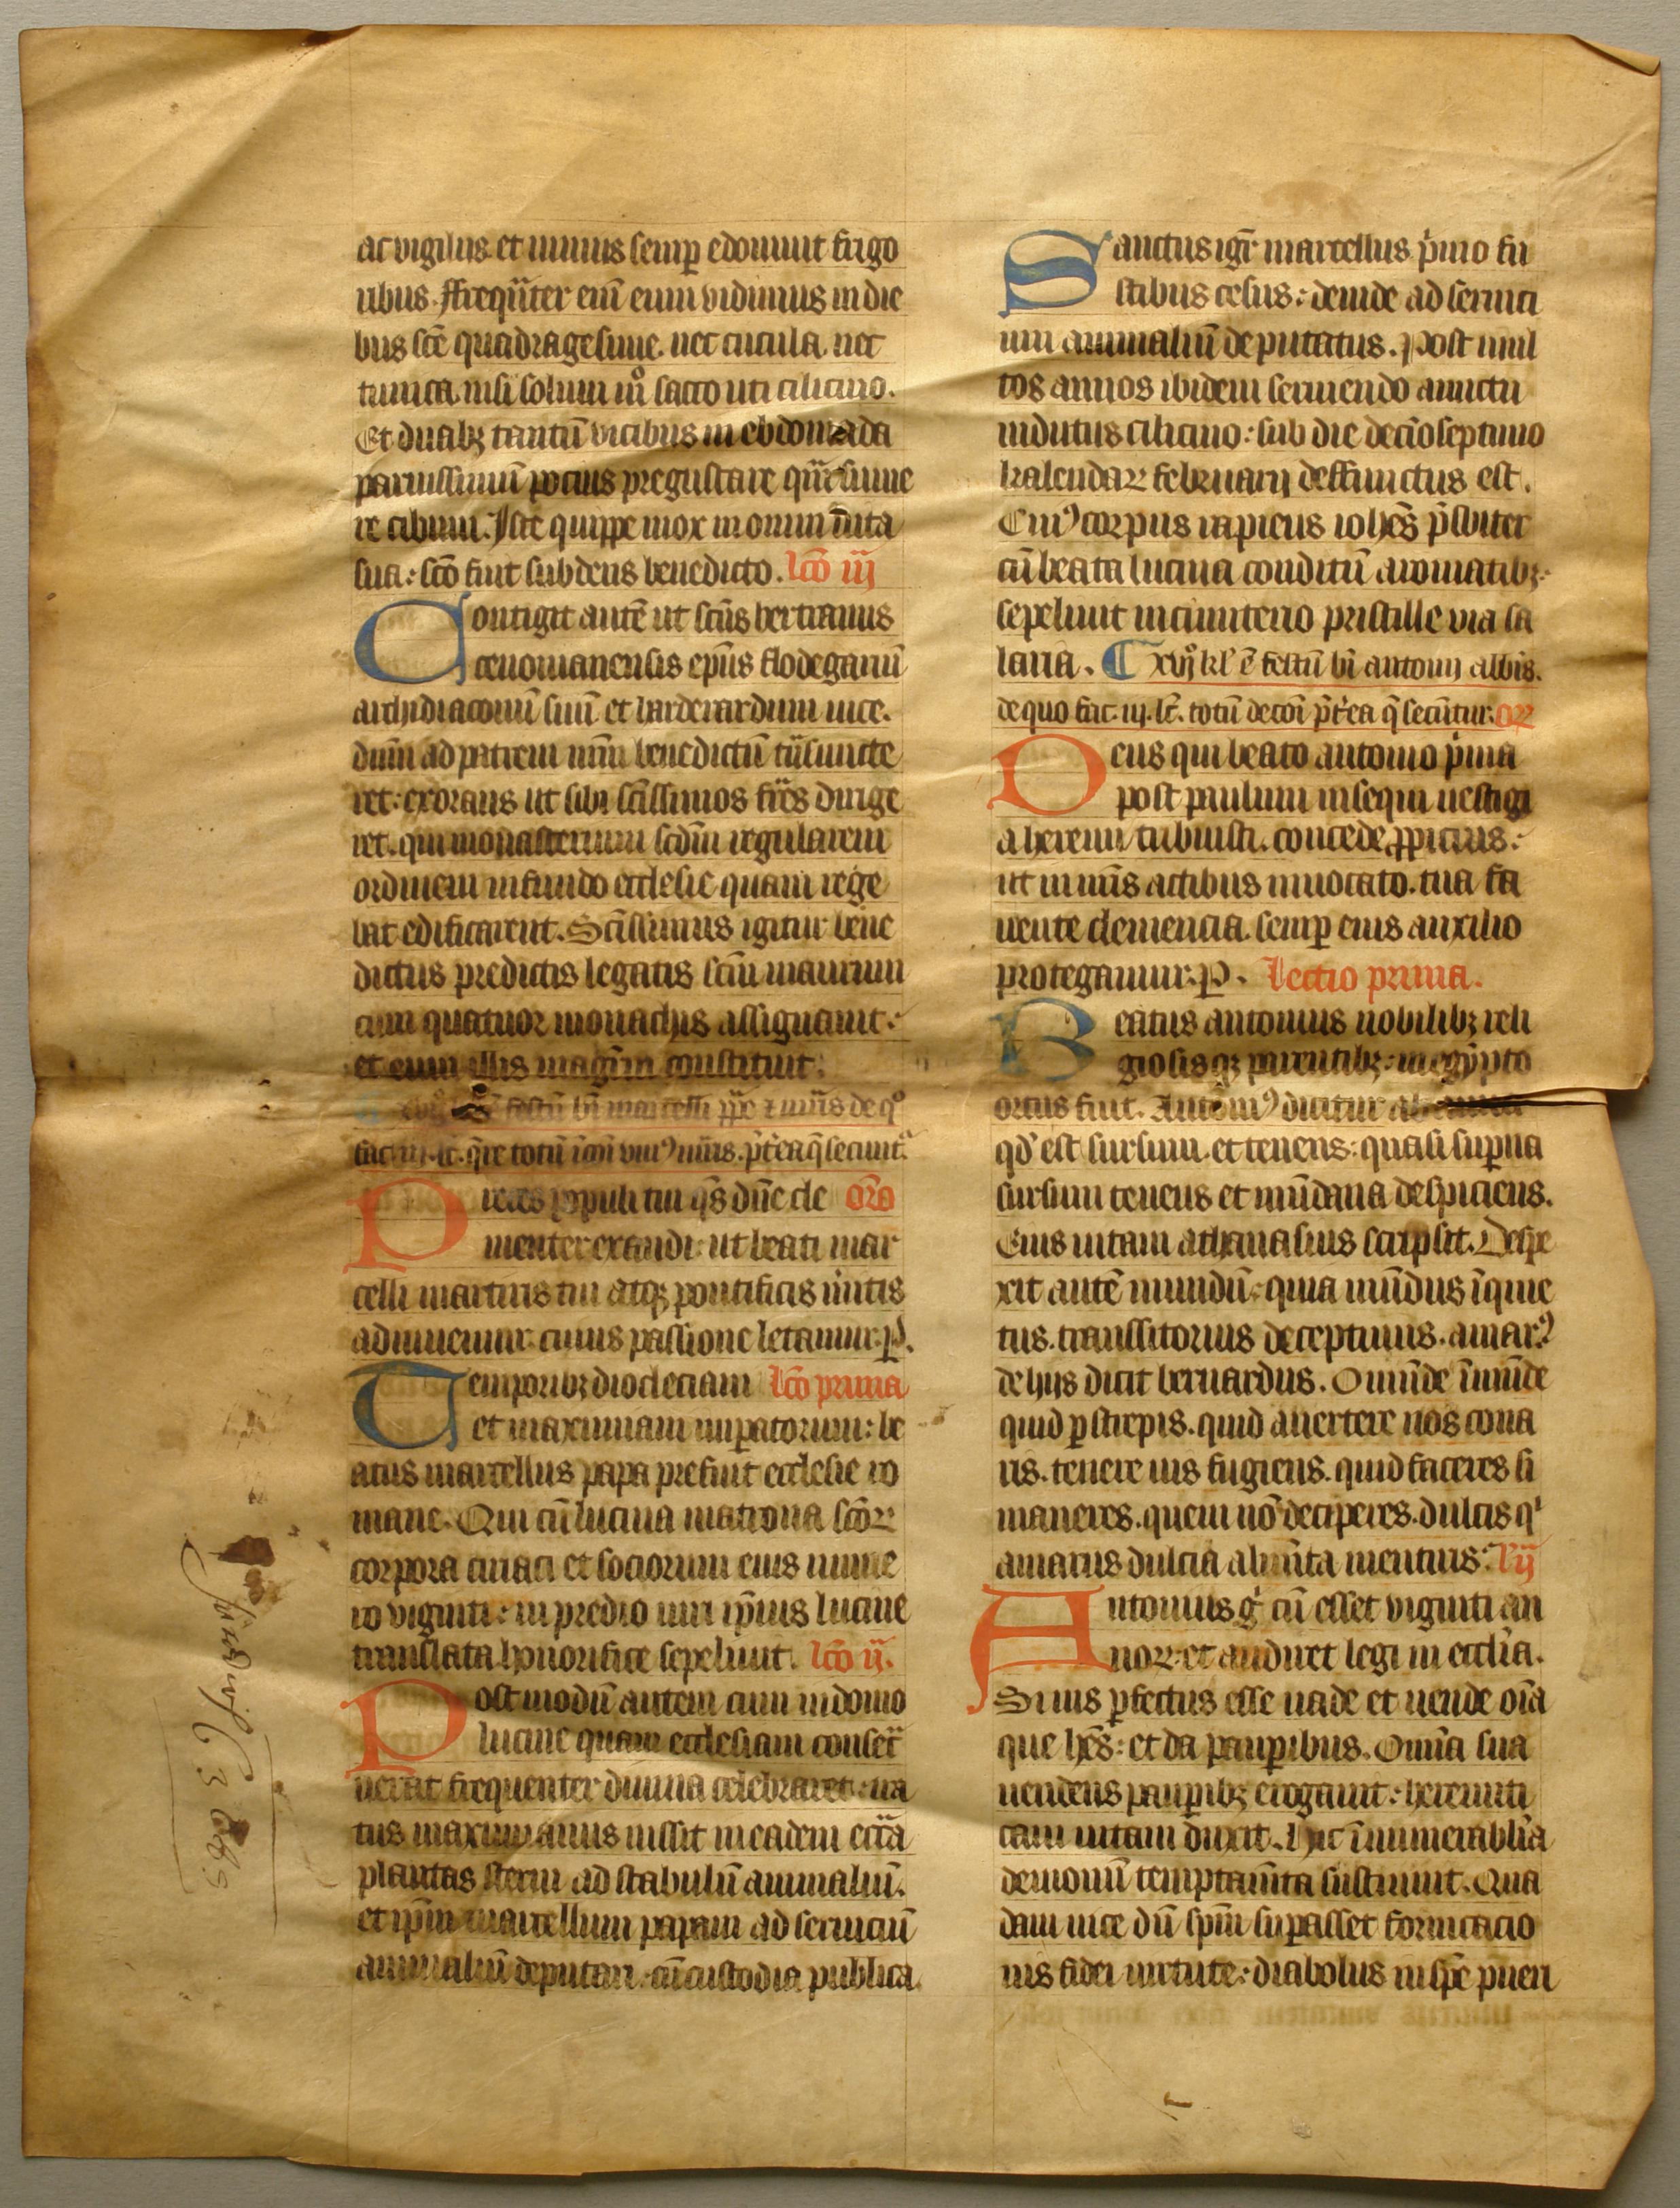 ac vigiliis et ieiuniis semp̄ edomuit frigo
ribus. ffreqn̄ter em̄ eum vidimus in die
bus scē quadragesime. nec cuculla. nec
tunica. nisi solum m̊ sacco uti cilicino.
Et duabꝫ tantū vicibus in ebdomada
parvissimū pocius pregustare qm̄ sume
re cibum. Iste quippe mox in omni vita
sua: scō fuit subdens benedicto. lcō iij
Contigit autē ut scūs bertranus
cenomanensis ep̄us flodegariū
archidiaconū suū et harderardum vice.
dūm ad patrem nrm̄ benedictū
ret: exorans ut sibi scīssimos frēs dirige
ret. qui monasterium scdm̄ regularem
ordinem in fundo ecclesie quam rege
bat edificarent. Scīssimus igitur bene
dictus predictis legatis scm̄ maurum
cum quatuor monachis assignavit:
et eum illis magr̄m constituit:
festū bī marcelli pp̄e ⁊ mr̄is de qͦ
fac. iij. lc̄. totū p̄t̄ea q̄ secunt̄.
Preces ppuli tui qs̄ dn̄e cle orō
menter exaudi: ut beati mar
celli martiris tui atqꝫ pontificis m̄itis
adiuvemur: cuius passione letamur. p.
Temporibꝫ diocleciani lcō prima
et maximiani imp̄atorum: be
atus marcellus papa prefuit ecclesie ro
mane. Qui cū lucina matrona scōꝝ
corpora ciriaci et sociorum eius nume
ro viginti: in predio viri ip̄ius lucine
translata honorifice sepelivit. lcō ij.
Postmodū autem cum in domo
lucine quam ecclesiam consec̄
verat frequenter divina celebraret: ira
tus maximianus iussit in eadem eccl̄ia
plantas sterni ad stabulū animaliū.
et ip̄m marcellum papam ad serviciū
animaliū deputari: cū custodia publica.
Sanctus igr̄ marcellus p̄mo fu
stibus cesus: deinde ad servici
um animaliū deputatus. Post mul
tos annos ibidem serviendo amictu
indutus cilicino: sub die decīoseptimo
kalendaꝝ februarij deffunctus est.
Cuiꝰ corpus rapiens ioh̄es p̄sbiter
cū beata lucina conditū aromatibꝫ
sepelivit in cimiterio priscille via sa
laria. ¶ xvjͦ kl' ē festū bī antonij abb̄is.
de quo fac. iij. lc̄. totū de cōi p̄t̄ea q̄ secūntur. oꝝ
Deus qui beato antonio p̄ma
post paulum insequi vestigi
a heremi tribuisti. concede ꝓpicius:
ut in nr̄is actibus invocato. tua fa
vente clemencia. semp̄ eius auxilio
protegamur. p. Lectio prima.
Beatus antonius nobilibꝫ reli
giosisqꝫ parentibꝫ: in egypto
ortus fuit. Antōniꝰ dicitur ab
qd' est sursum. et tenens: quasi sup̄na
sursum tenens et mūdana despiciens.
Eius vitam athanasius scripsit. Despe
xit autē mundū: quia mūdus īquie
tus. transsitorius deceptivus. amarꝰ
de hijs dicit bernardus. O mūde īmūde
quid p̄strepis. quid avertere nos cona
ris. tenere vis fugiens. quid faceres si
maneres. quem nō deciperes. dulcis qͥ
amarus dulcia alim̄ta mentiris: l' ij
Antonius gͥ cū esset viginti an
noꝝ: et audiret legi in eccl̄ia.
Si vis p̄fectus esse vade et vende oīa
que hēs: et da paup̄ibus. Omīa sua
vendens paup̄ibꝫ erogavit: heremiti
cam vitam duxit. Hic īnumerabil̄ia
demonū temptam̄ta sustinuit. Qua
dam vice dū spm̄ sup̄asset fornicacio
nis fidei virtute: diabolus in spē pueri